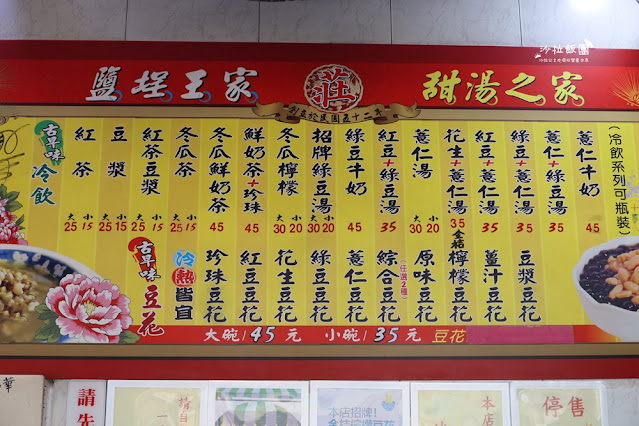 沙拉飯團
鹽埕王家 莊 甜湯之家
創立於民國五十二年
古早味冷飲
紅茶 大25 小15
豆漿 大25 小15
紅茶豆漿 大25 小15
冬瓜茶 大25 小15
冬瓜鮮奶茶 45
鮮奶茶+珍珠 45
冬瓜檸檬 大30 小20
招牌綠豆湯 大30 小20
綠豆牛奶 45
紅豆+綠豆湯 35
薏仁湯 大30 小20
花生+薏仁湯 35
紅豆+薏仁湯 35
綠豆+薏仁湯 35
薏仁牛奶 45
(冷飲系列可瓶裝)
古早味豆花
冷熱皆宜
珍珠豆花
紅豆豆花
花生豆花
綠豆豆花
薏仁豆花
綜合豆花(任選2種)
原味豆花
金桔檸檬豆花
薑汁豆花
豆漿豆花
大碗/45元 小碗/35元 豆花
華
請先
請自
本店招牌!
金桔檸檬豆花
本店
停售